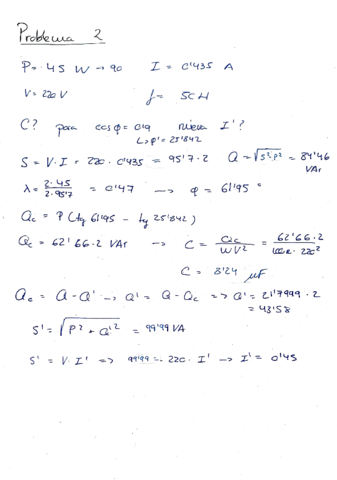 Problema 2
P = 45 W → 90 I = 0'435 A
V = 220 V f = 50 H
C? para cos φ = 0'9 nueva I'?
↳ φ' = 25'842
S = V·I = 220 · 0'435 = 95'7·2 Q = √S²-P² = 84'46 VAr
λ = 2·45 / 2·95'7 = 0'47 → φ = 61'95 °
Qc = P (tg 61'95 - tg 25'842)
Qc = 62'66·2 VAr → C = Qc / WV² = 62'66·2 / · 220²
C = 8'24 μF
Qc = Q - Q' → Q' = Q - Qc => Q' = 21'7999·2
= 43'58
S' = √P² + Q'² = 99'99 VA
S' = V·I' => 99'99 = 220 · I' → I' = 0'45